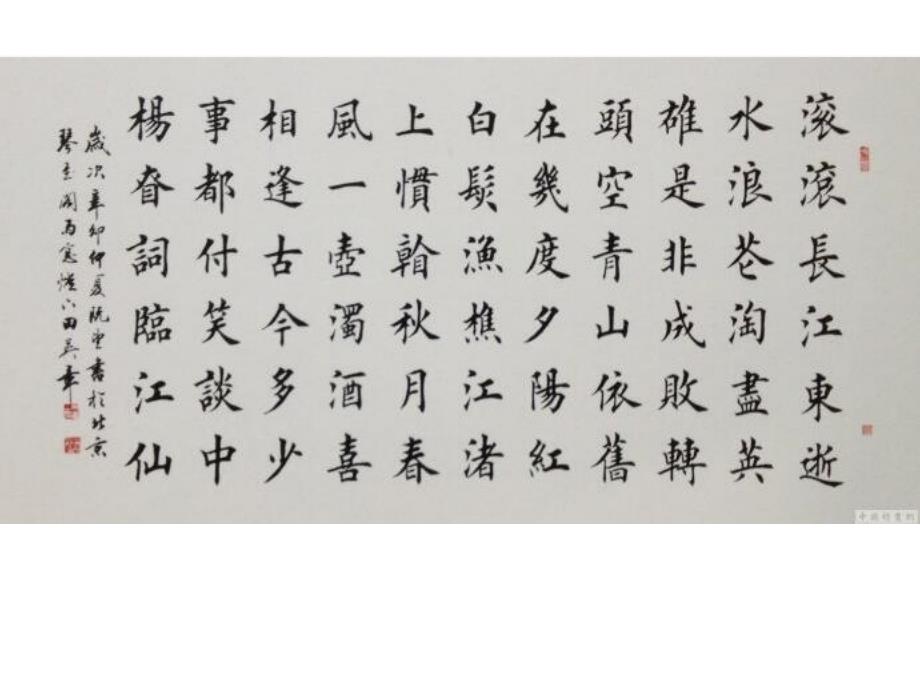 滚滚長江東逝
水浪花淘盡英
雄是非成敗轉
頭空青山依舊
在幾度夕陽紅
白髮漁樵江渚
上慣看秋月春
風一壺濁酒喜
相逢古今多少
事都付笑談中
楊眘詞臨江仙
歲次辛卯仲夏書於北京
閣南窓燈下田英章